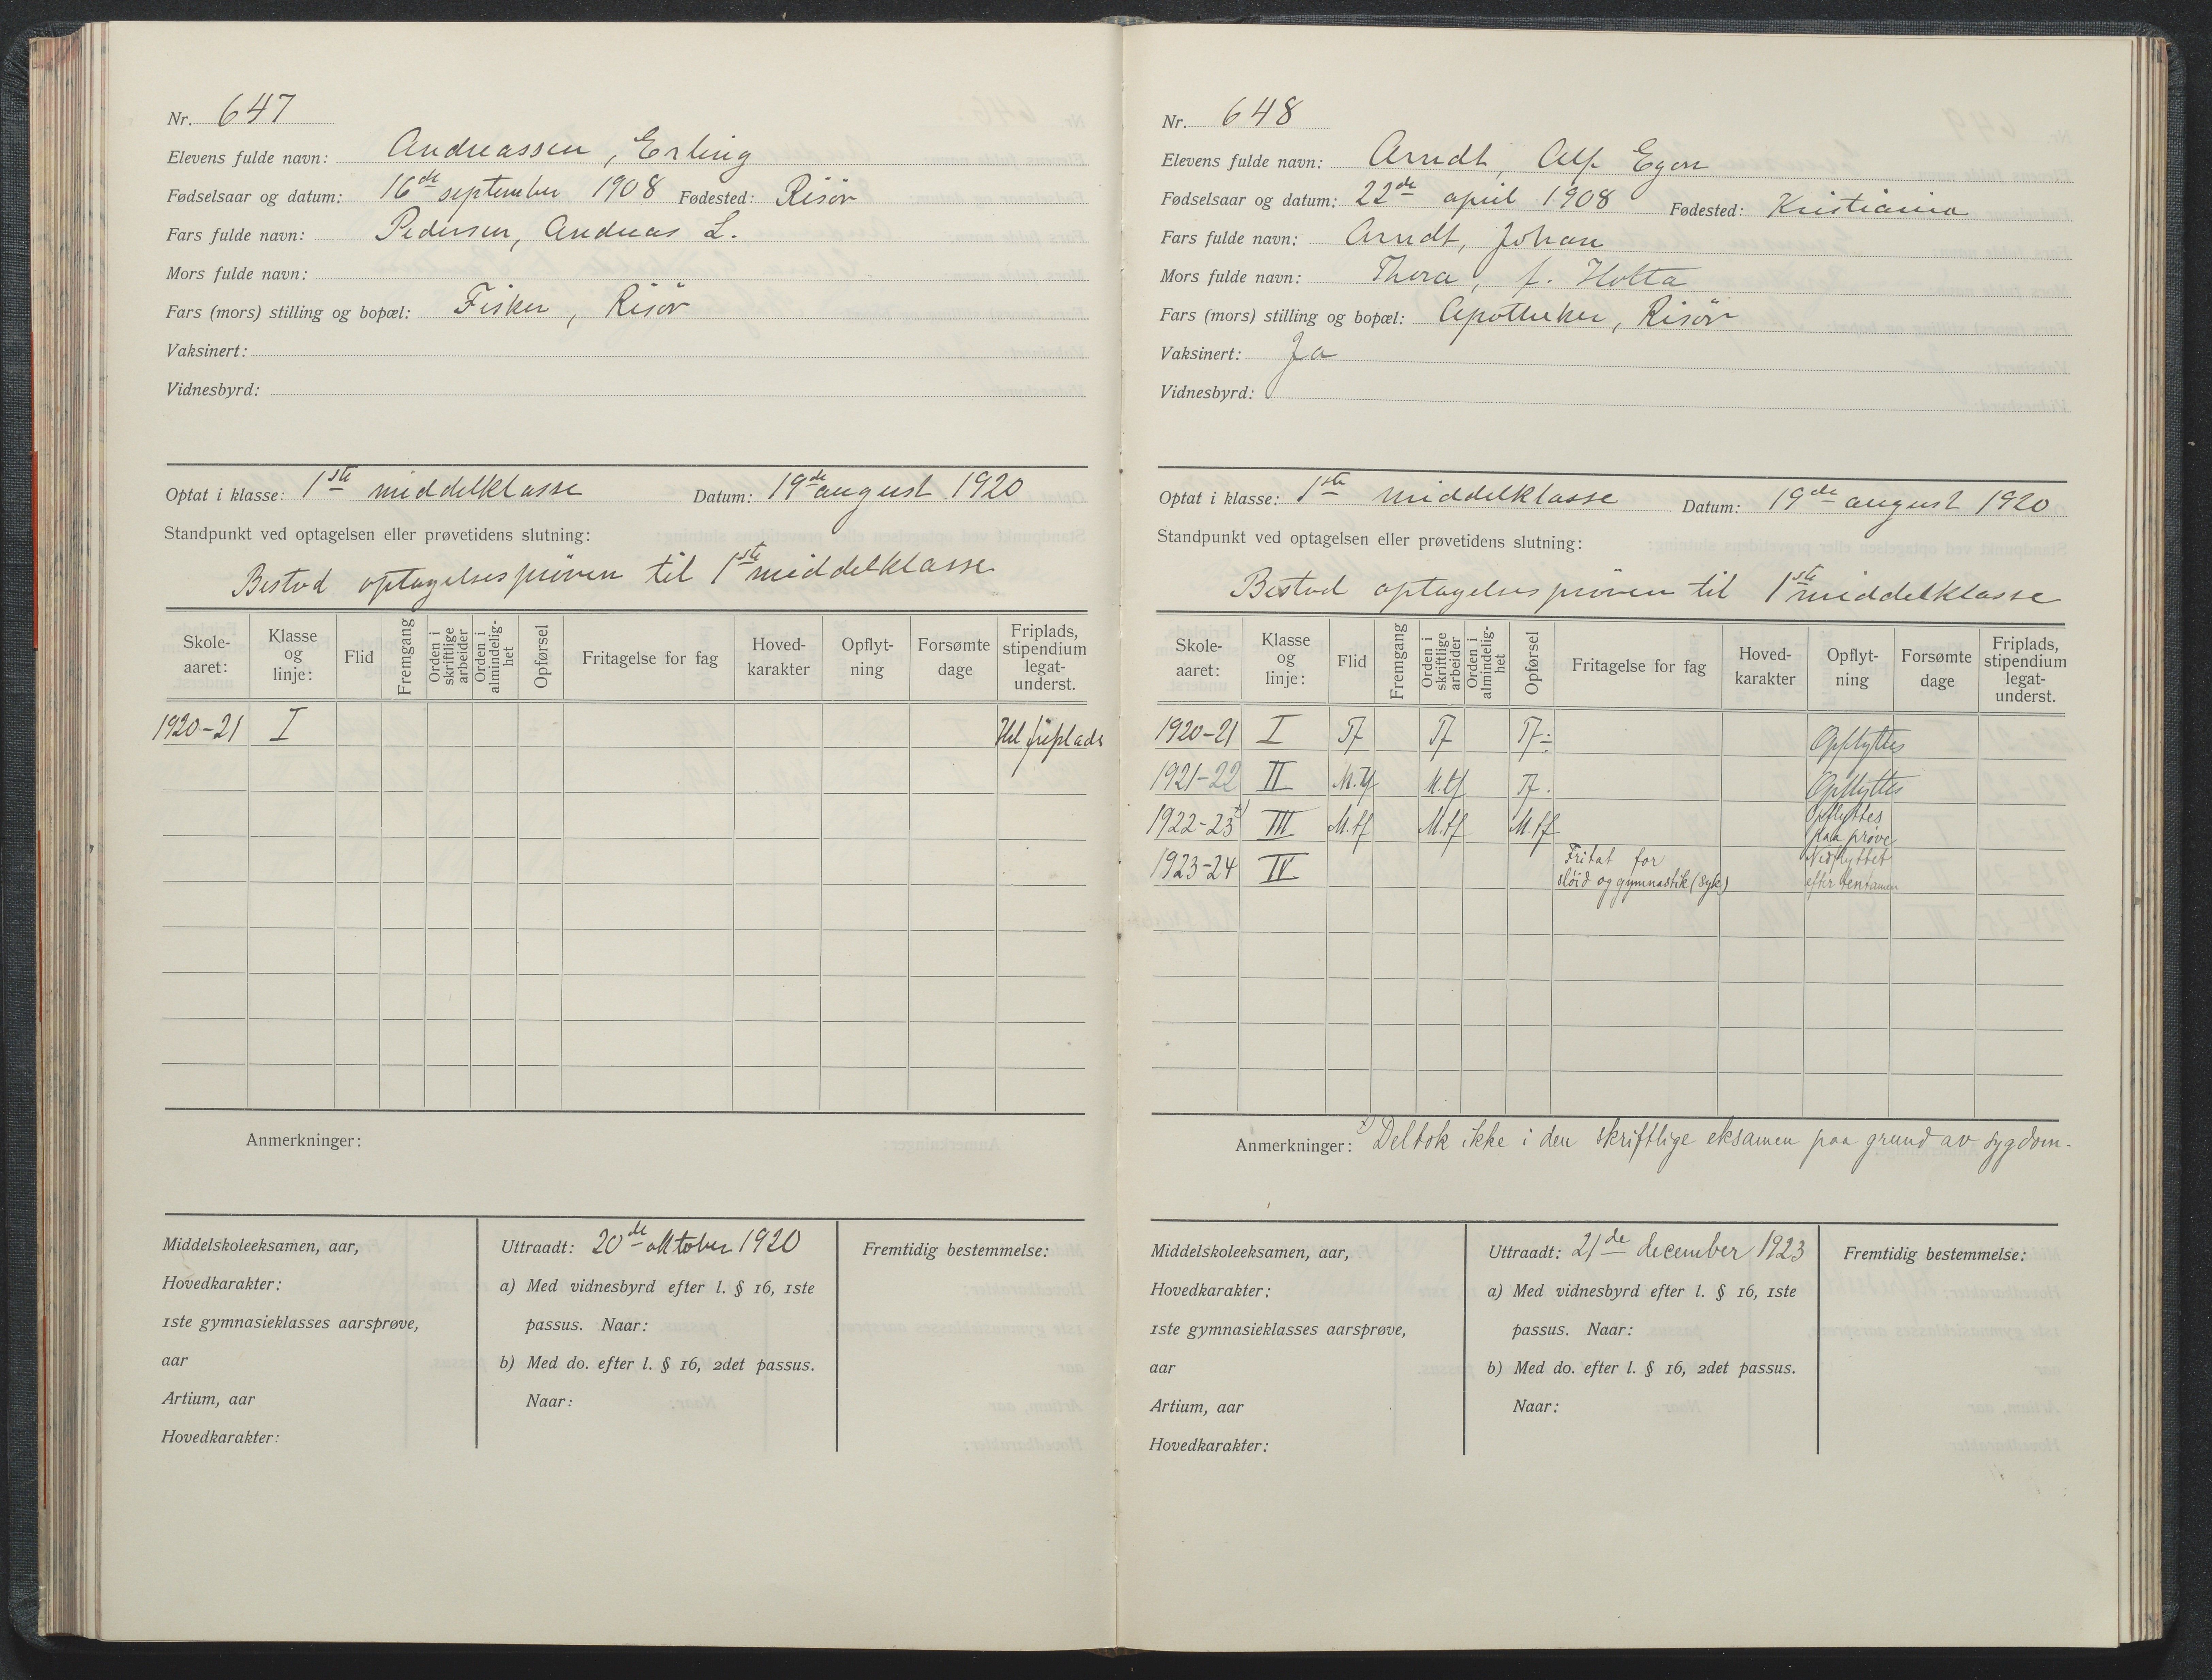 Nr. 647
Elevens fulde navn: Andreassen, Erling
Fødselsaar og datum: 16de september 1908 Fødested: Risör
Fars fulde navn: Pedersen, Andreas L.
Mors fulde navn:
Fars (mors) stilling og bopæl: Fisker, Risör
Vaksinert:
Vidnesbyrd:
Optat i klasse: 1ste middelklasse Datum: 19de august 1920
Standpunkt ved optagelsen eller prøvetidens slutning:
Bestod optagelsespröven til 1ste middelklasse
Skole-aaret: Klasse og linje: Flid Fremgang Orden i skriftlige arbeider Orden i almindelig-het Opførsel Fritagelse for fag Hoved-karakter Opflyt-ning Forsømte dage Friplads, stipendium legat-underst.
1920-21 I Hel friplads
Anmerkninger:
Middelskoleeksamen, aar,
Hovedkarakter:
1ste gymnasieklasses aarsprøve,
aar
Artium, aar
Hovedkarakter:
Uttraadt: 20de oktober 1920
a) Med vidnesbyrd efter l. § 16, 1ste
passus. Naar:
b) Med do. efter l. § 16, 2det passus.
Naar:
Fremtidig bestemmelse:
Nr. 648
Elevens fulde navn: Arndt, Alf Egon
Fødselsaar og datum: 22de april 1908 Fødested: Kristiania
Fars fulde navn: Arndt, Johan
Mors fulde navn: Thora, f. Holta
Fars (mors) stilling og bopæl: Apotheker, Risör
Vaksinert: Ja
Vidnesbyrd:
Optat i klasse: 1ste middelklasse Datum: 19de august 1920
Standpunkt ved optagelsen eller prøvetidens slutning:
Bestod optagelsespröven til 1ste middelklasse
Skole-aaret: Klasse og linje: Flid Fremgang Orden i skriftlige arbeider Orden i almindelig-het Opførsel Fritagelse for fag Hoved-karakter Opflyt-ning Forsømte dage Friplads, stipendium legat-underst.
1920-21 I Tf Tf Tf÷ Opflyttes
1921-22 II M.tf M.tf Tf. Opflyttes
1922-23 x) III M.tf M.tf M.tf Opflyttes paa prøve
1923-24 IV Fritat for sløid og gymnastik (syk) Nedflyttet efter tentamen
Anmerkninger: x) Deltok ikke i den skriftlige eksamen paa grund av sygdom.
Middelskoleeksamen, aar,
Hovedkarakter:
1ste gymnasieklasses aarsprøve,
aar
Artium, aar
Hovedkarakter:
Uttraadt: 21de december 1923
a) Med vidnesbyrd efter l. § 16, 1ste
passus. Naar:
b) Med do. efter l. § 16, 2det passus.
Naar:
Fremtidig bestemmelse: